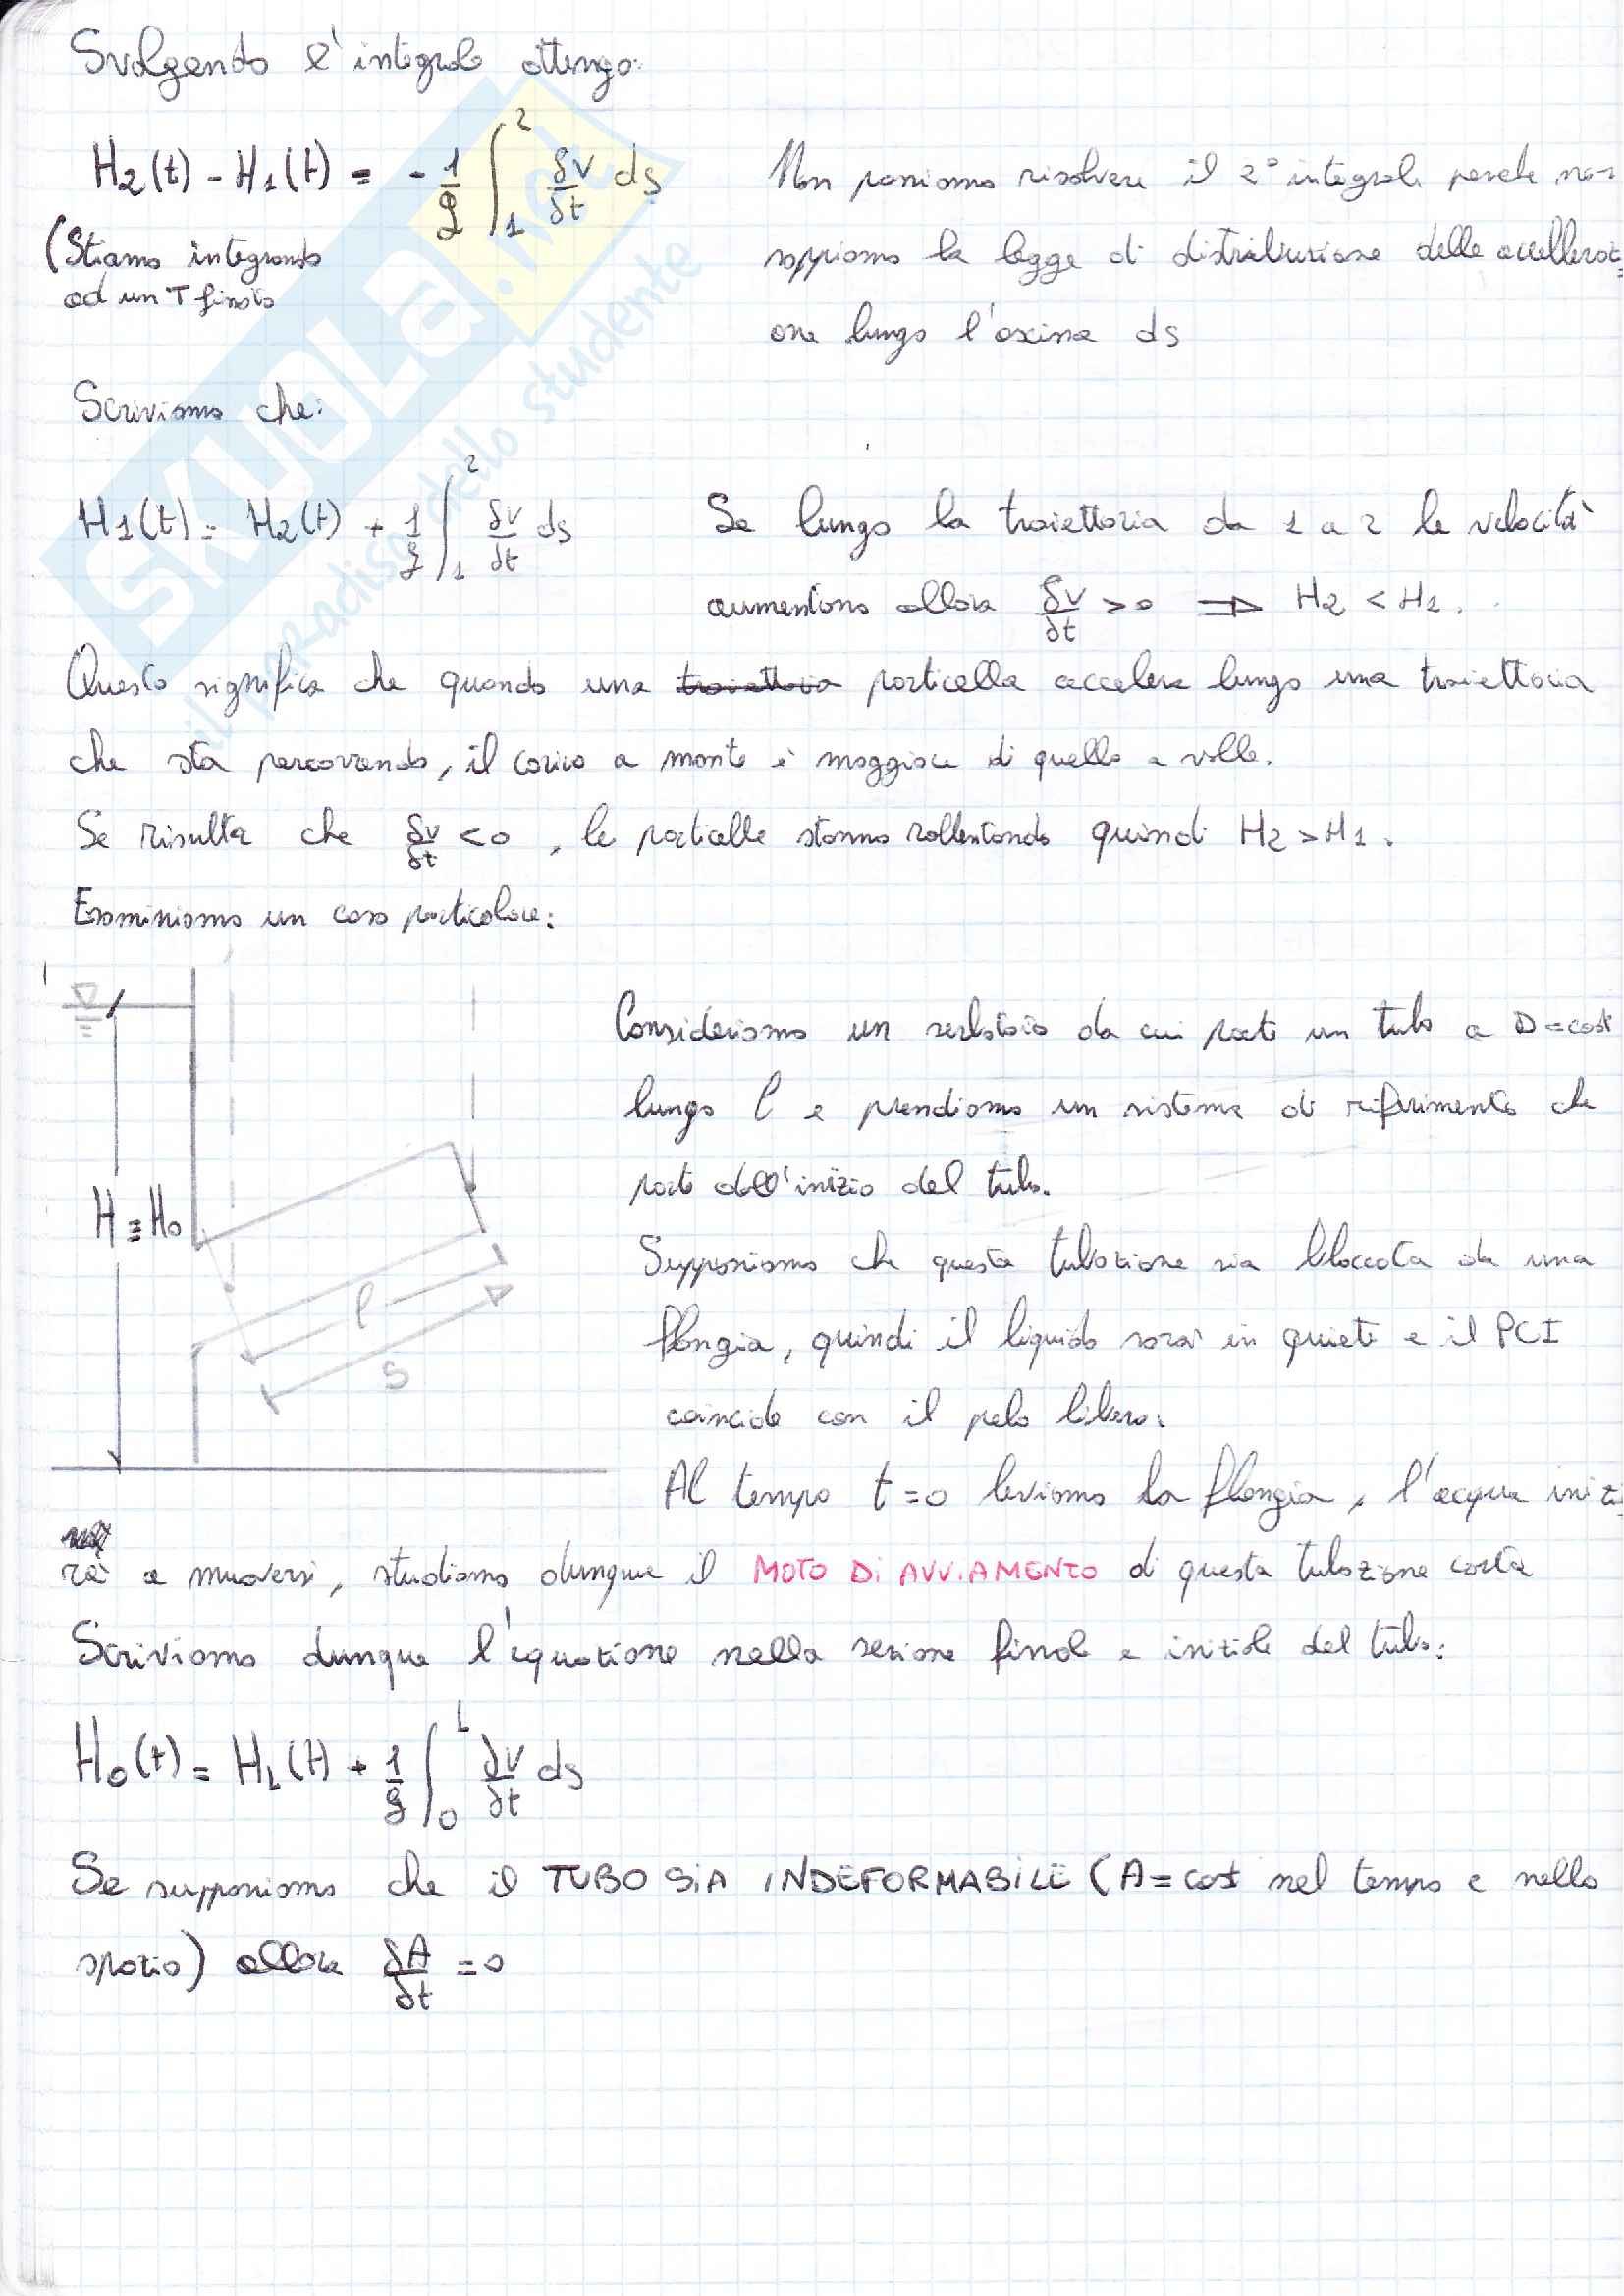 Svolgendo l'integrale ottengo:
H₂(t) - H₁(t) = - 1/g ∫₁² δv/δt ds
Non possiamo risolvere il 2° integrale perché non
(Stiamo integrando
sappiamo la legge di distribuzione delle accellerazi=
ad un T finito
one lungo l'ascissa ds
Scriviamo che:
H1(t) = H2(t) + 1/g ∫₁² δv/δt ds
Se lungo la traiettoria da 1 a 2 le velocità
aumentano allora δv/δt > 0 ⇒ H2 < H1.
Questo significa che quando una traiettoria particella accelera lungo una traiettoria
che sta percorrendo, il carico a monte è maggiore di quello a valle.
Se risulta che δv/δt < 0, le particelle stanno rallentando quindi H2 > H1.
Esaminiamo un caso particolare:
Consideriamo un serbatoio da cui parte un tubo a D=cost
lungo l e prendiamo un sistema di riferimento che
parte dall'inizio del tubo.
H ≡ H₀
l
S
Supponiamo che questa tubazione sia bloccata da una
flangia, quindi il liquido sarà in quiete e il PCI
coincide con il pelo libero.
Al tempo t=0 leviamo la flangia, l'acqua inizi
rà a muoversi, studiamo dunque il MOTO DI AVVIAMENTO di questa tubazione corta
Scriviamo dunque l'equazione nella sezione finale e iniziale del tubo:
H₀(t) = H_L(t) + 1/g ∫₀ᴸ ∂v/∂t ds
Se supponiamo che il TUBO SIA INDEFORMABILE (A = cost nel tempo e nello
spazio) allora δA/δt = 0
SKUOLA.net
il paradiso dello studente